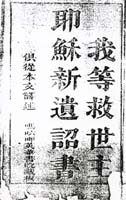 我等救世主
耶穌新遺詔書
俱從本文譯述